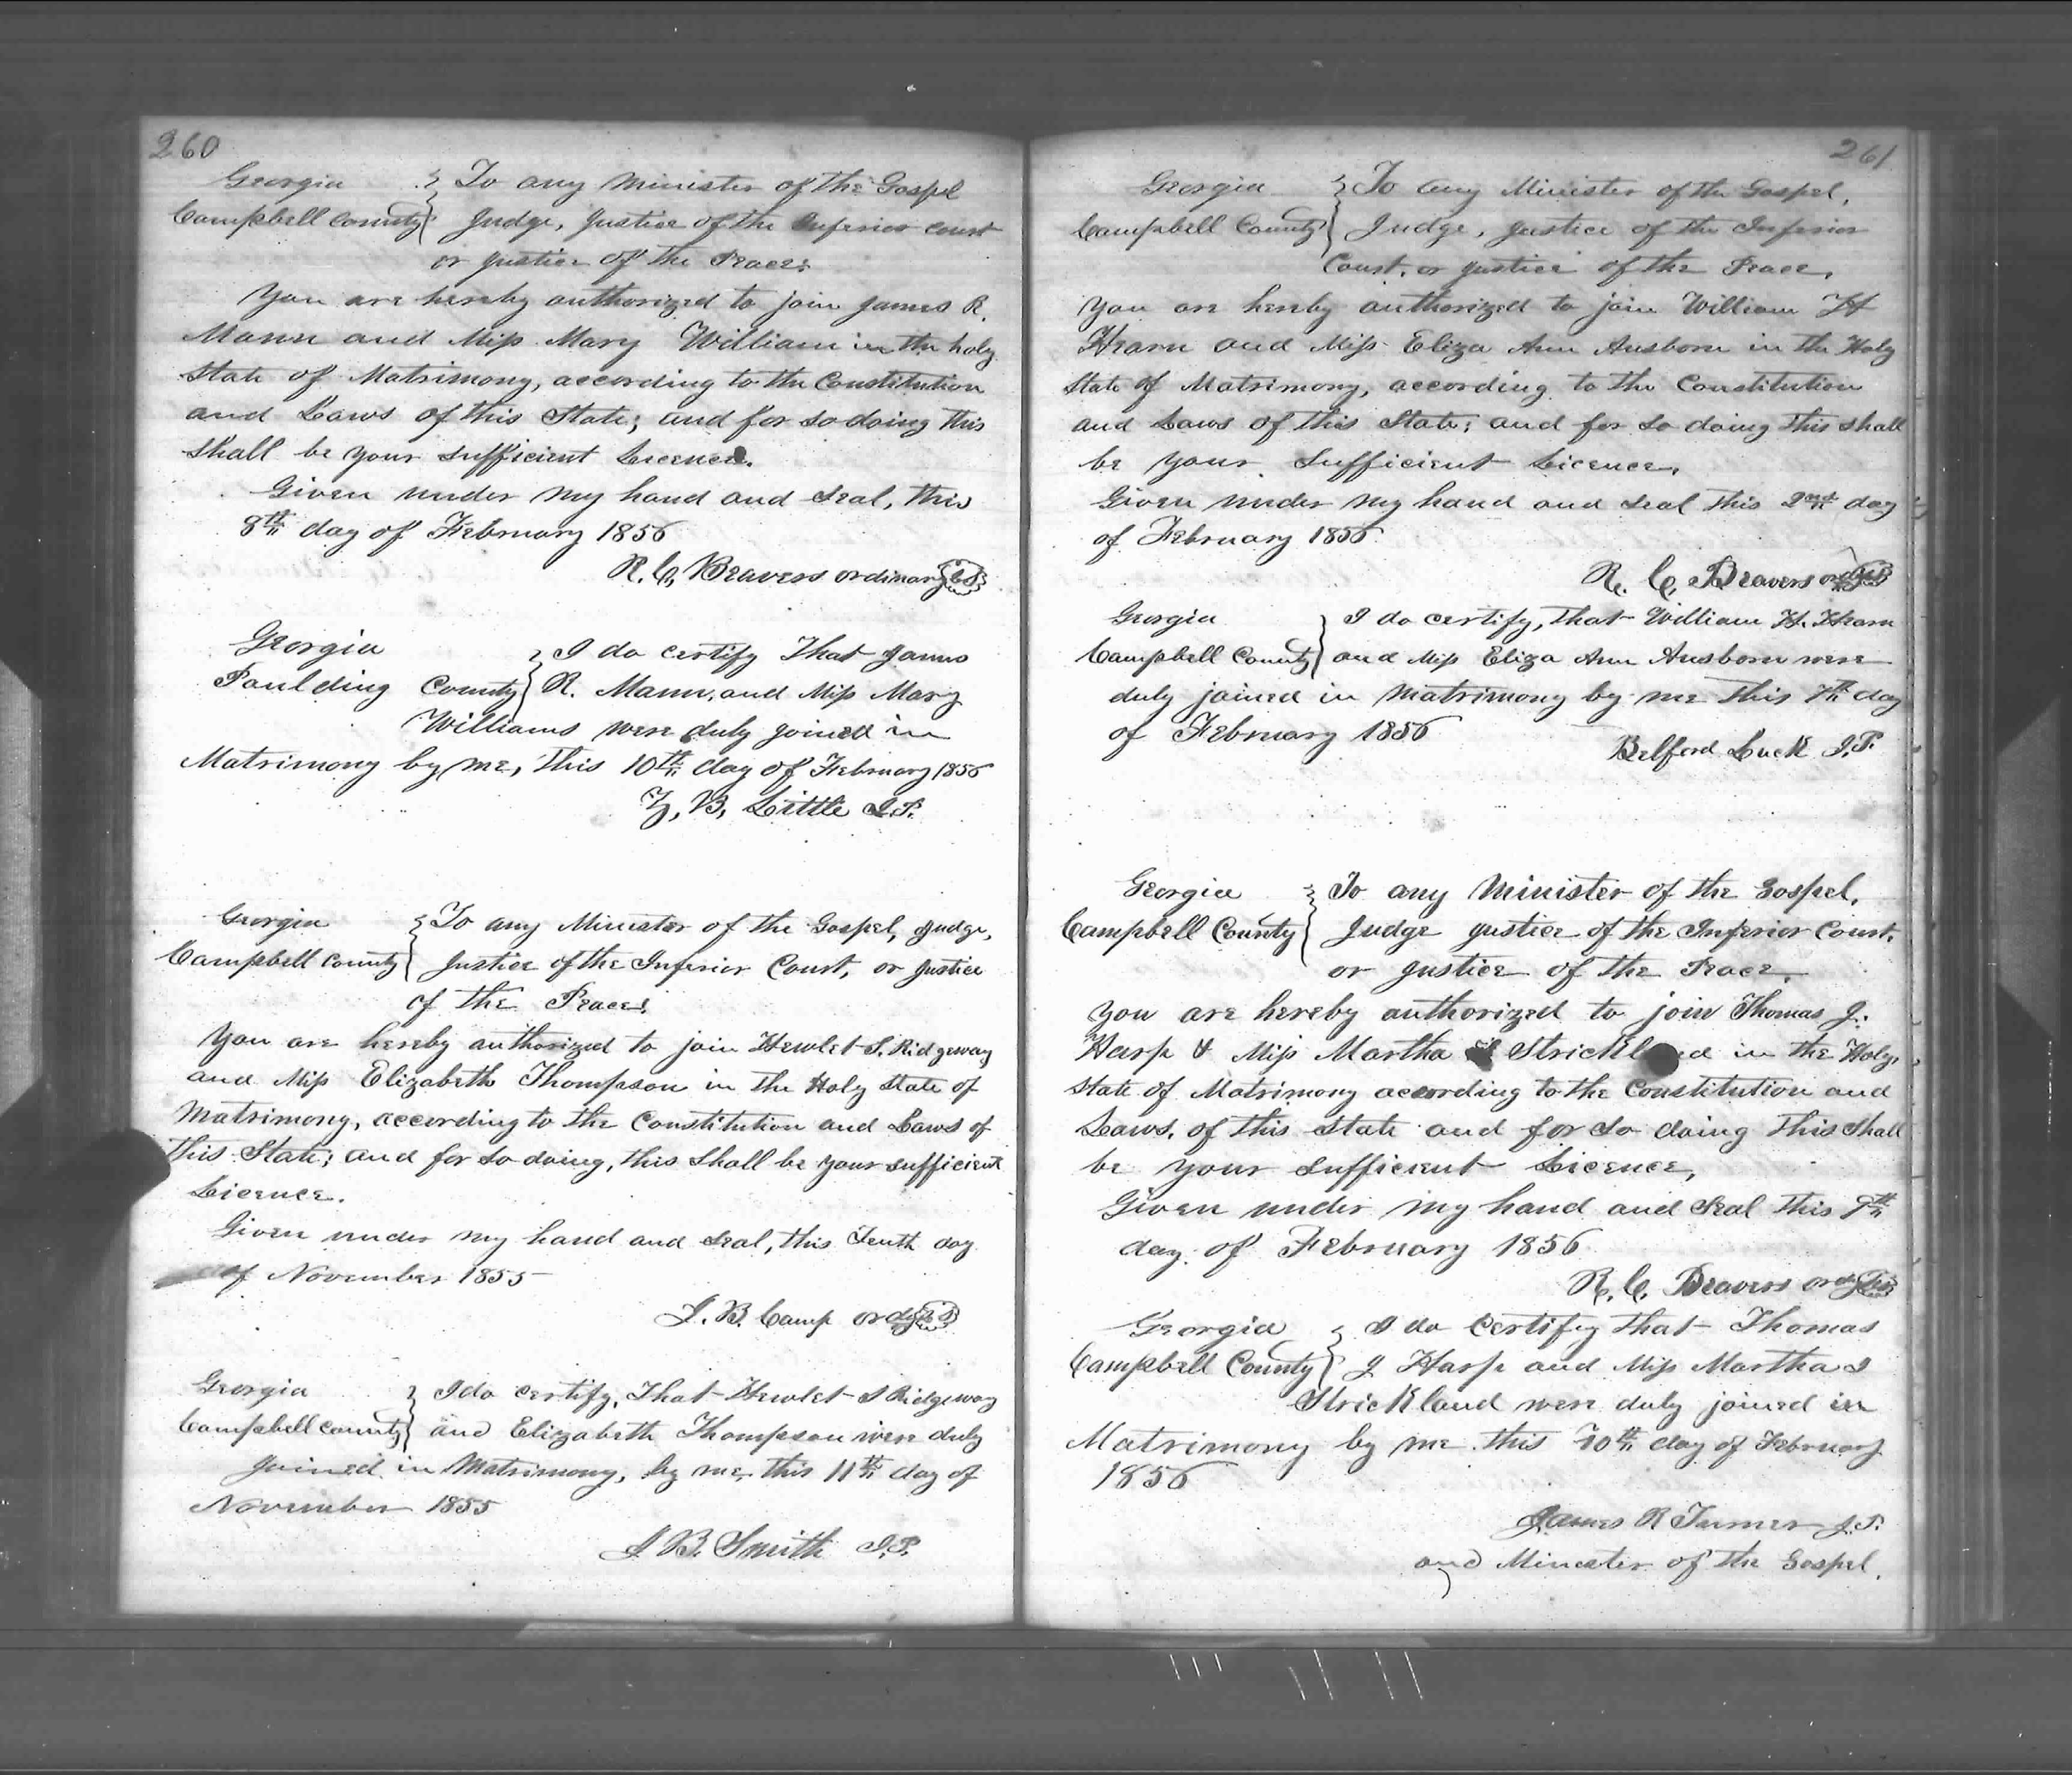 260
Georgia } To any Minister of the Gospel
Campbell County } Judge, Justice of the Inferior Court
or Justice of the Peace;
You are hereby authorized to join James R.
Mann and Miss Mary William in the holy
State of Matrimony, according to the Constitution
and Laws of this State; and for so doing this
shall be your sufficient Licence.
Given under my hand and seal, this
8th day of February 1856
R. C. Beavers ordinary L.S.
Georgia } I do certify That James
Paulding County } R. Mann, and Miss Mary
Williams were duly joined in
Matrimony by me, this 10th day of February 1856
Z. B. Little J.P.
Georgia } To any Minister of the Gospel, Judge,
Campbell County } Justice of the Inferior Court, or Justice
of the Peace;
You are hereby authorized to join Hewlet S. Ridgeway
and Miss Elizabeth Thompson in the Holy state of
Matrimony, according to the Constitution and Laws of
this State; and for so doing, this shall be your sufficient
Licence.
Given under my hand and seal, this Tenth day
of November 1855
J. B. Camp ordy L.S.
Georgia } I do certify, That Hewlet S Ridgeway
Campbell County } and Elizabeth Thompson were duly
joined in Matrimony, by me, this 11th day of
November 1855
J B. Smith J.P.
261
Georgia } To any Minister of the Gospel,
Campbell County } Judge, Justice of the Inferior
Court, or Justice of the Peace,
You are hereby authorized to join William H
Hearn and Miss Eliza Ann Ausborn in the Holy
State of Matrimony, according to the Constitution
and Laws of this State; and for so doing this shall
be your sufficient Licence,
Given under my hand and seal this 2nd day
of February 1856
R. C. Beavers ordy L.S.
Georgia } I do certify, that William H. Hearn
Campbell County } and Miss Eliza Ann Ausborn were
duly joined in Matrimony by me this 7th day
of February 1856
Belford Luck J.P.
Georgia } To any Minister of the Gospel,
Campbell County } Judge Justice of the Inferior Court,
or Justice of the Peace,
You are hereby authorized to join Thomas J.
Harp & Miss Martha Strickland in the Holy
State of Matrimony according to the Constitution and
Laws, of this State and for so doing this shall
be your sufficient Licence,
Given under my hand and seal this 9th
day of February 1856
R. C. Beavers ordy L.S.
Georgia } I do certify that Thomas
Campbell County } J Harp and Miss Martha J
Strickland were duly joined in
Matrimony by me this 10th day of February
1856
James R Turner J.P.
and Minester of the Gospel.